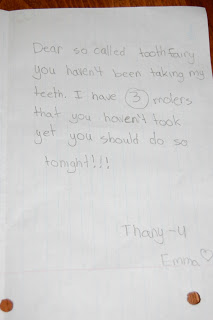 Dear so called toothfairy
you haven't been taking my
teeth. I have 3 molers
that you haven't took
yet you should do so
tonight!!!
Thany-u
Emma♡